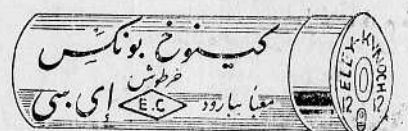 كينوخ بونكس
خرطوش
معبأ ببارود E.C إى سي
ELEY-KYNOCH
12 12